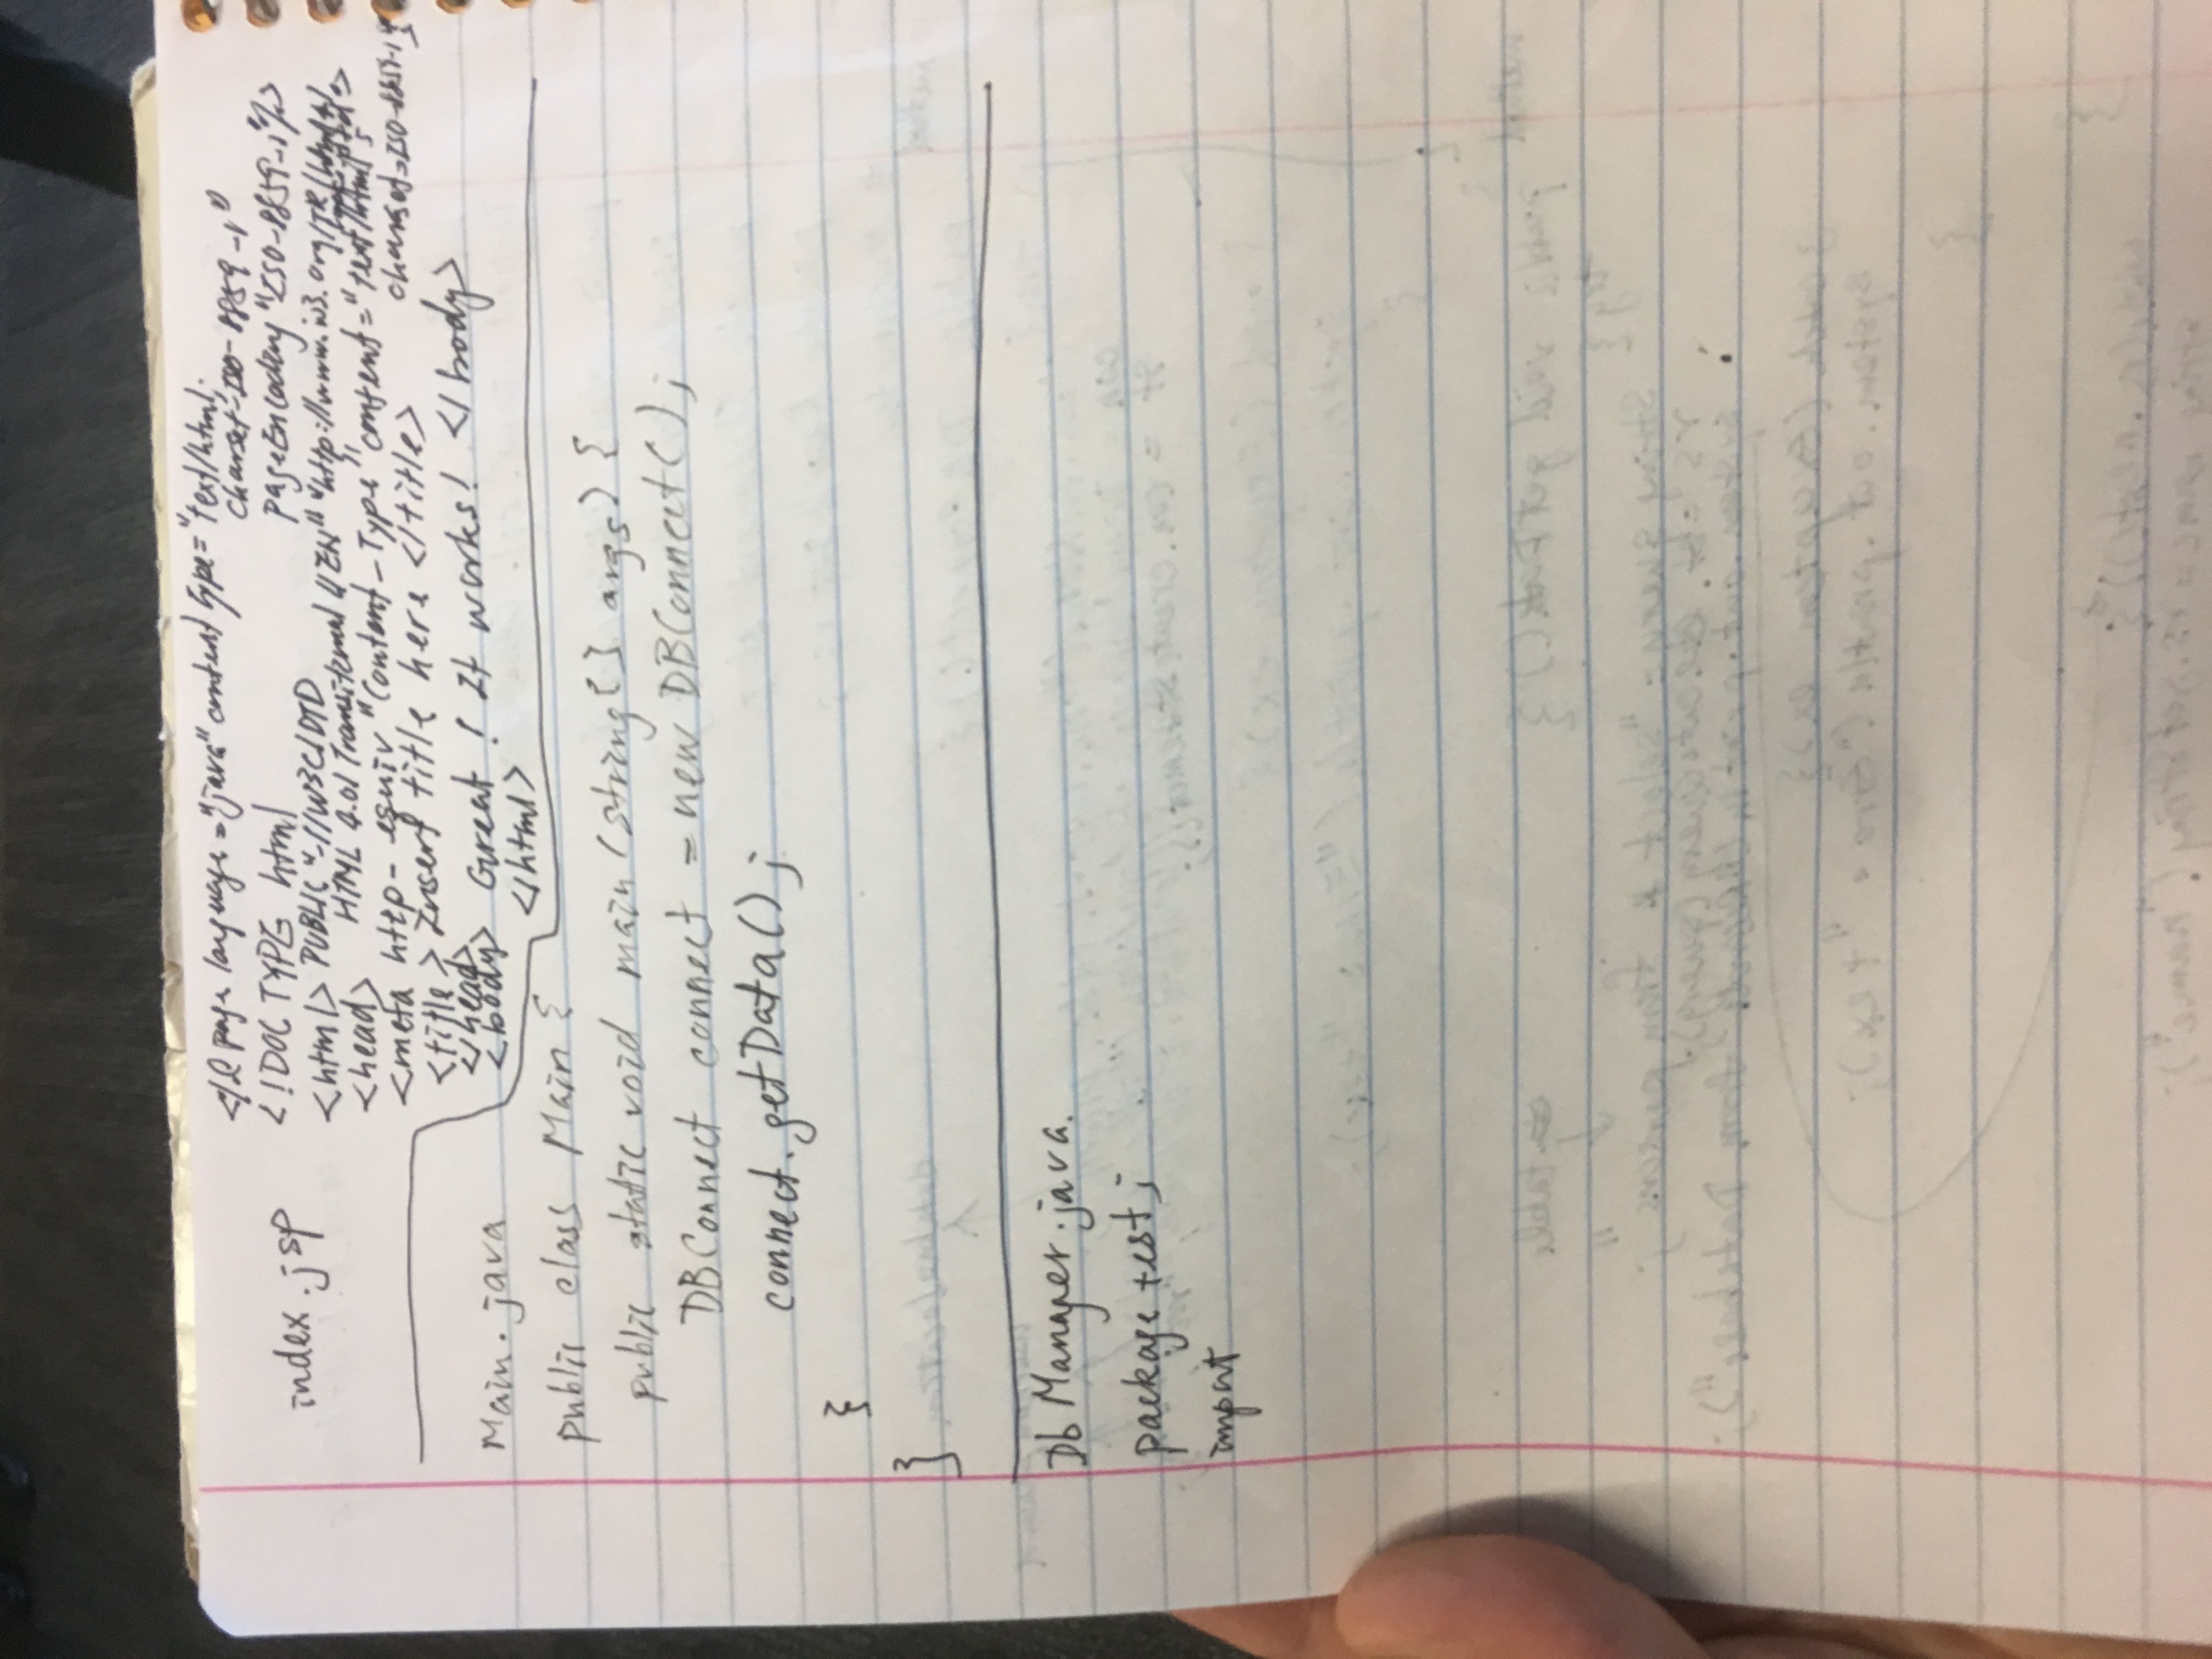 index.jsp
page language="java" content Type="text/html;
charset=ISO-8859-1"
pageEncoding "ISO-8859-1"%>
<!DOCTYPE html
<html> PUBLIC "-//W3C/DTD
HTML 4.01 Transitional //EN" "http://www.w3.org/TR/html4/
<head>
<meta http-equiv "Content-Type" content="text/html;
charset=ISO-8859-1"
<title> Insert title here </title>
</head>
<body> Great! It works! </body>
</html>
Main.java
public class Main {
public static void main (string[] args) {
DBConnect connect = new DBConnect();
connect.getData();
}
}
Db Manager.java.
package test;
import